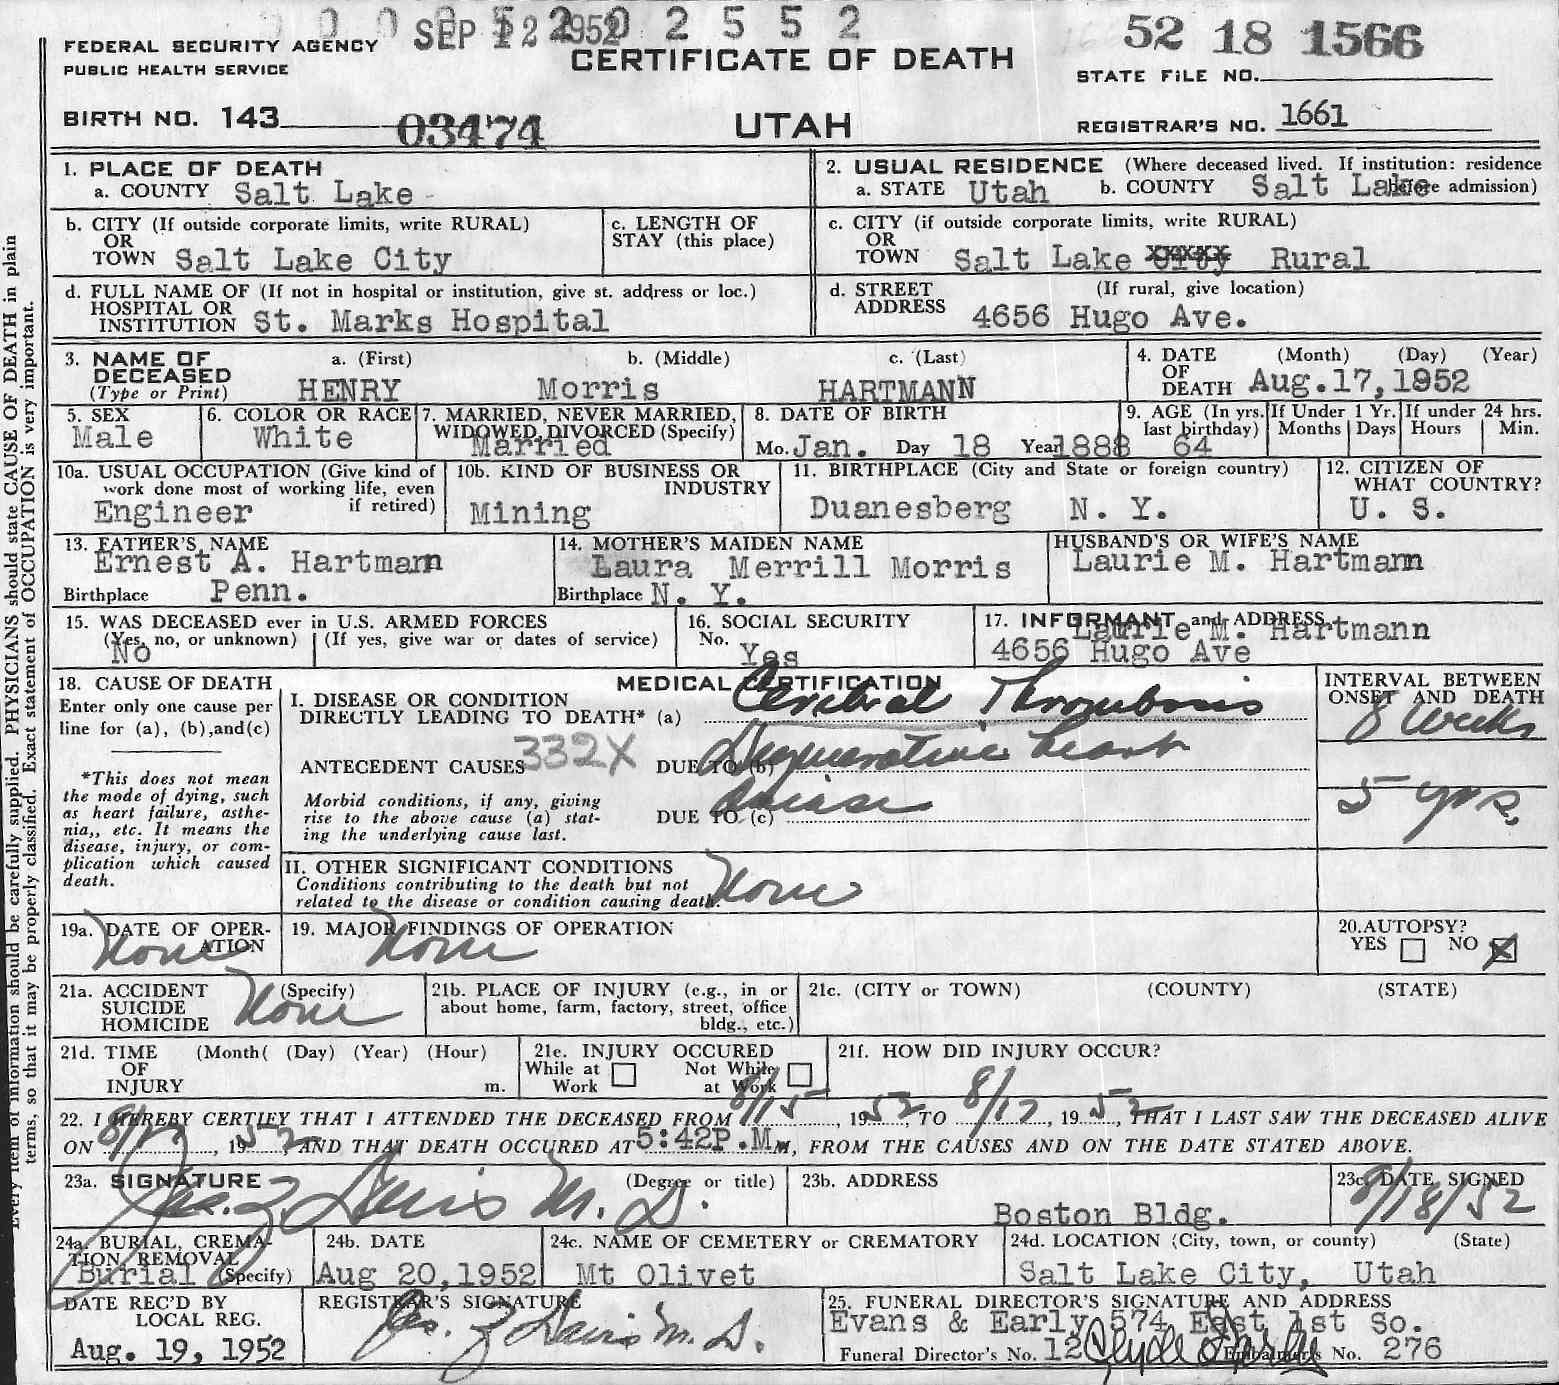 0 0 0 5 2 0 2 5 5 2
SEP 12 1952
52 18 1566
FEDERAL SECURITY AGENCY
PUBLIC HEALTH SERVICE
CERTIFICATE OF DEATH
STATE FILE NO.
BIRTH NO. 143 03474
UTAH
REGISTRAR'S NO. 1661
1. PLACE OF DEATH
a. COUNTY Salt Lake
2. USUAL RESIDENCE (Where deceased lived. If institution: residence before admission)
a. STATE Utah b. COUNTY Salt Lake
b. CITY (If outside corporate limits, write RURAL)
OR
TOWN Salt Lake City
c. LENGTH OF
STAY (this place)
c. CITY (if outside corporate limits, write RURAL)
OR
TOWN Salt Lake City Rural
d. FULL NAME OF (If not in hospital or institution, give st. address or loc.)
HOSPITAL OR
INSTITUTION St. Marks Hospital
d. STREET (If rural, give location)
ADDRESS 4656 Hugo Ave.
3. NAME OF
DECEASED
(Type or Print)
a. (First) b. (Middle) c. (Last)
HENRY Morris HARTMANN
4. DATE (Month) (Day) (Year)
OF
DEATH Aug.17,1952
5. SEX
Male
6. COLOR OR RACE
White
7. MARRIED, NEVER MARRIED,
WIDOWED, DIVORCED (Specify)
Married
8. DATE OF BIRTH
Mo. Jan. Day 18 Year 1888
9. AGE (In yrs.
last birthday) 64
If Under 1 Yr.
Months Days
If under 24 hrs.
Hours Min.
10a. USUAL OCCUPATION (Give kind of
work done most of working life, even
if retired)
Engineer
10b. KIND OF BUSINESS OR
INDUSTRY
Mining
11. BIRTHPLACE (City and State or foreign country)
Duanesberg N. Y.
12. CITIZEN OF
WHAT COUNTRY?
U. S.
13. FATHER'S NAME
Ernest A. Hartmann
Birthplace Penn.
14. MOTHER'S MAIDEN NAME
Laura Merrill Morris
Birthplace N. Y.
HUSBAND'S OR WIFE'S NAME
Laurie M. Hartmann
15. WAS DECEASED ever in U.S. ARMED FORCES
(Yes, no, or unknown) (If yes, give war or dates of service)
No
16. SOCIAL SECURITY
No. Yes
17. INFORMANT and ADDRESS
Laurie M. Hartmann
4656 Hugo Ave
18. CAUSE OF DEATH
Enter only one cause per
line for (a), (b),and(c)
*This does not mean
the mode of dying, such
as heart failure, asthe-
nia,, etc. It means the
disease, injury, or com-
plication which caused
death.
MEDICAL CERTIFICATION
I. DISEASE OR CONDITION
DIRECTLY LEADING TO DEATH* (a) Cerebral Thrombosis
ANTECEDENT CAUSES 332X DUE TO (b) Degenerative heart
Morbid conditions, if any, giving
rise to the above cause (a) stat-
ing the underlying cause last.
DUE TO (c) disease
INTERVAL BETWEEN
ONSET AND DEATH
8 Weeks
5 yrs.
II. OTHER SIGNIFICANT CONDITIONS
Conditions contributing to the death but not
related to the disease or condition causing death.
None
19a. DATE OF OPER-
ATION
None
19. MAJOR FINDINGS OF OPERATION
None
20.AUTOPSY?
YES NO X
21a. ACCIDENT (Specify)
SUICIDE
HOMICIDE
None
21b. PLACE OF INJURY (e.g., in or
about home, farm, factory, street, office
bldg., etc.)
21c. (CITY or TOWN) (COUNTY) (STATE)
21d. TIME (Month( (Day) (Year) (Hour)
OF
INJURY m.
21e. INJURY OCCURED
While at Work Not While at Work
21f. HOW DID INJURY OCCUR?
22. I HEREBY CERTIFY THAT I ATTENDED THE DECEASED FROM 8/15, 1952, TO 8/17, 1952, THAT I LAST SAW THE DECEASED ALIVE
ON 8/17, 1952, AND THAT DEATH OCCURED AT 5:42P.M. m, FROM THE CAUSES AND ON THE DATE STATED ABOVE.
23a. SIGNATURE (Degree or title)
Jas. Z Davis M. D.
23b. ADDRESS
Boston Bldg.
23c. DATE SIGNED
8/18/52
24a. BURIAL, CREMA-
TION, REMOVAL
Burial (Specify)
24b. DATE
Aug 20,1952
24c. NAME OF CEMETERY or CREMATORY
Mt Olivet
24d. LOCATION (City, town, or county) (State)
Salt Lake City, Utah
DATE REC'D BY
LOCAL REG.
Aug. 19, 1952
REGISTRAR'S SIGNATURE
Jas. Z Davis M. D.
25. FUNERAL DIRECTOR'S SIGNATURE AND ADDRESS
Evans & Early 574 East 1st So.
Funeral Director's No. 12 Embalmer's No. 276
Every item of information should be carefully supplied. PHYSICIANS should state CAUSE OF DEATH in plain
terms, so that it may be properly classified. Exact statement of OCCUPATION is very important.